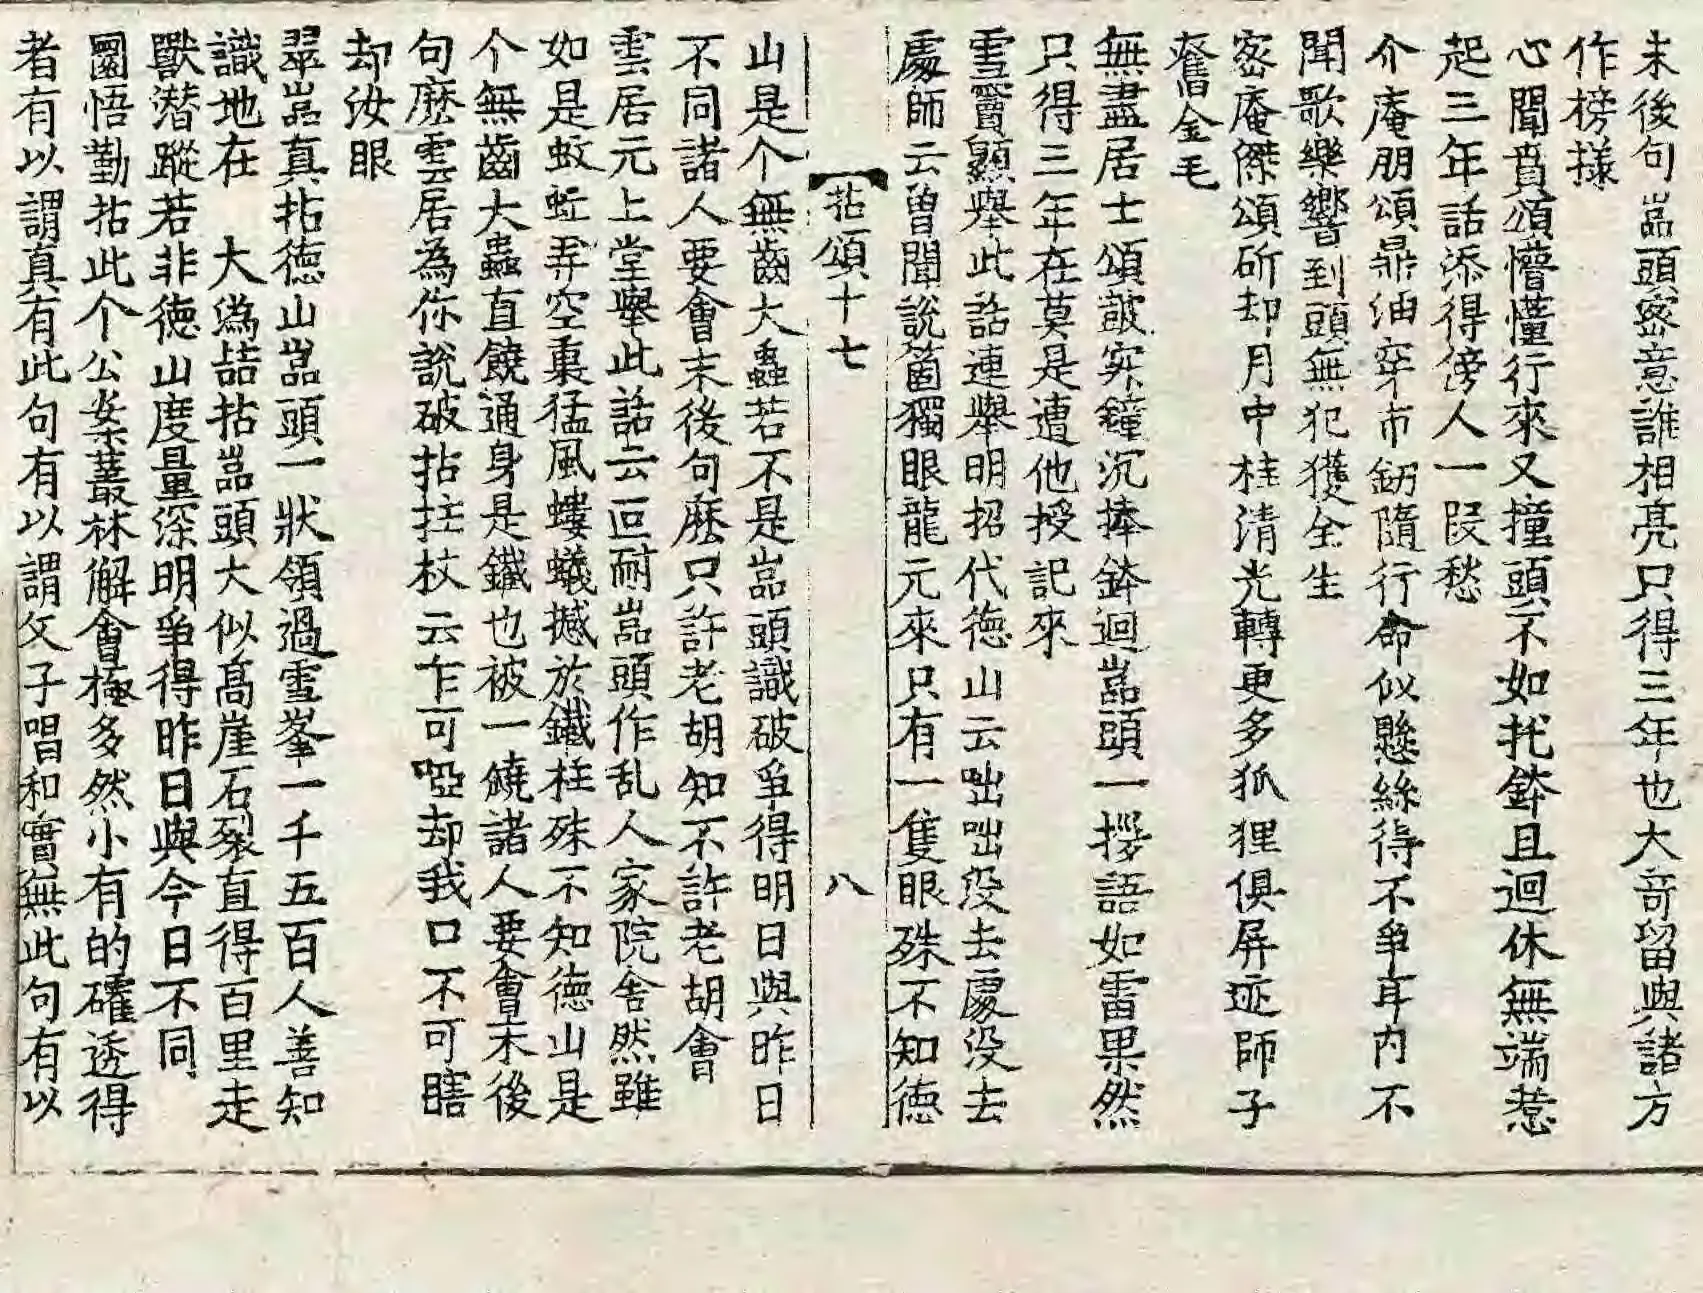 末後句嵓頭密意誰相亮只得三年也大竒留與諸方
作榜樣
心聞賁頌懵懂行來又撞頭不如托鉢且迴休無端惹
起三年話添得傍人一段愁
介庵朋頌鼎油穽市釰隨行命似懸絲得不爭耳内不
聞歌樂響到頭無犯獲全生
密庵傑頌斫却月中桂淸光轉更多狐狸俱屛迹師子
奮金毛
無盡居士頌皷寂鐘沉捧鉢迴嵓頭一拶語如雷果然
只得三年在莫是遭他授記來
雪竇顯擧此話連擧明招代德山云咄咄没去處没去
處師云曾聞說箇獨眼龍元來只有一隻眼殊不知德
拈頌十七 八
山是个無齒大蟲若不是嵓頭識破爭得明日與昨日
不同諸人要會末後句麽只許老胡知不許老胡會
雲居元上堂擧此話云叵耐嵓頭作乱人家院舍然雖
如是蚊蚋弄空裏猛風螻蟻撼於鐵柱殊不知德山是
个無齒大蟲直饒通身是鐵也被一䶧諸人要會末後
句麽雲居為你說破拈拄杖云乍可啞却我口不可瞎
却汝眼
翠嵓真拈德山嵓頭一狀領過雪峯一千五百人善知
識地在 大潙喆拈嵓頭大似髙崖石裂直得百里走
獸潜蹤若非德山度量深明爭得昨日與今日不同
圜悟勤拈此个公案叢林解會極多然小有的確透得
者有以謂真有此句有以謂父子唱和實無此句有以